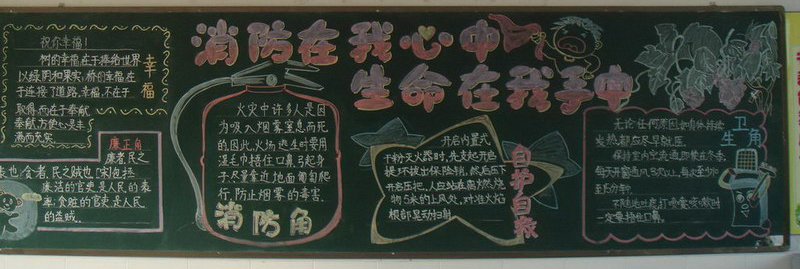 消防在我心中
生命在我手中
祝你幸福!
树的幸福在于捧给世界
以绿阴和果实,桥的幸福在
于连接了道路,幸福,不在于
取得,而在于奉献
奉献,方使心灵丰
满而充实
幸福
廉正角
廉者,民之
表也,贪者,民之贼也[宋]包拯
廉洁的官吏是人民的表
率;贪赃的官吏是人民
的盗贼。
火灾中许多人是因
为吸入烟雾窒息而死
的,因此,火场逃生时要用
湿毛巾捂住口鼻,弓起身
子,尽量靠近地面匍匐爬
行,防止烟雾的毒害.
消防角
开启内置式
干粉灭火器时,先支起开启
提环拔出保险销,然后压下
开启压把,人应站在离燃烧
物5米的上风处,对准火焰
根部晃动扫射
自护自救
卫生角
无论任何原因
发热都应及早就医.
保持室内空流通,即使在冬季,
一定要捂住口鼻.